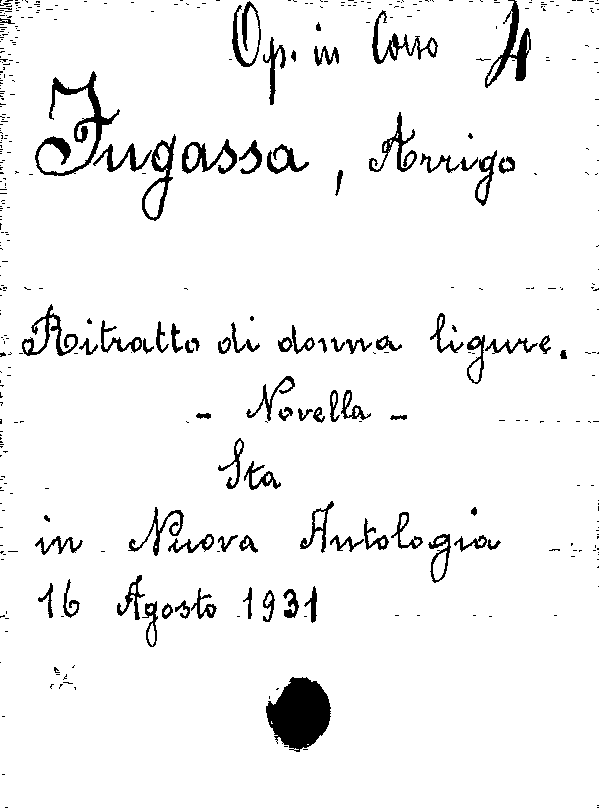 Op. in Corso 4
Fugassa, Arrigo
Ritratto di donna ligure.
- Novella -
Sta
in Nuova Antologia
16 Agosto 1931